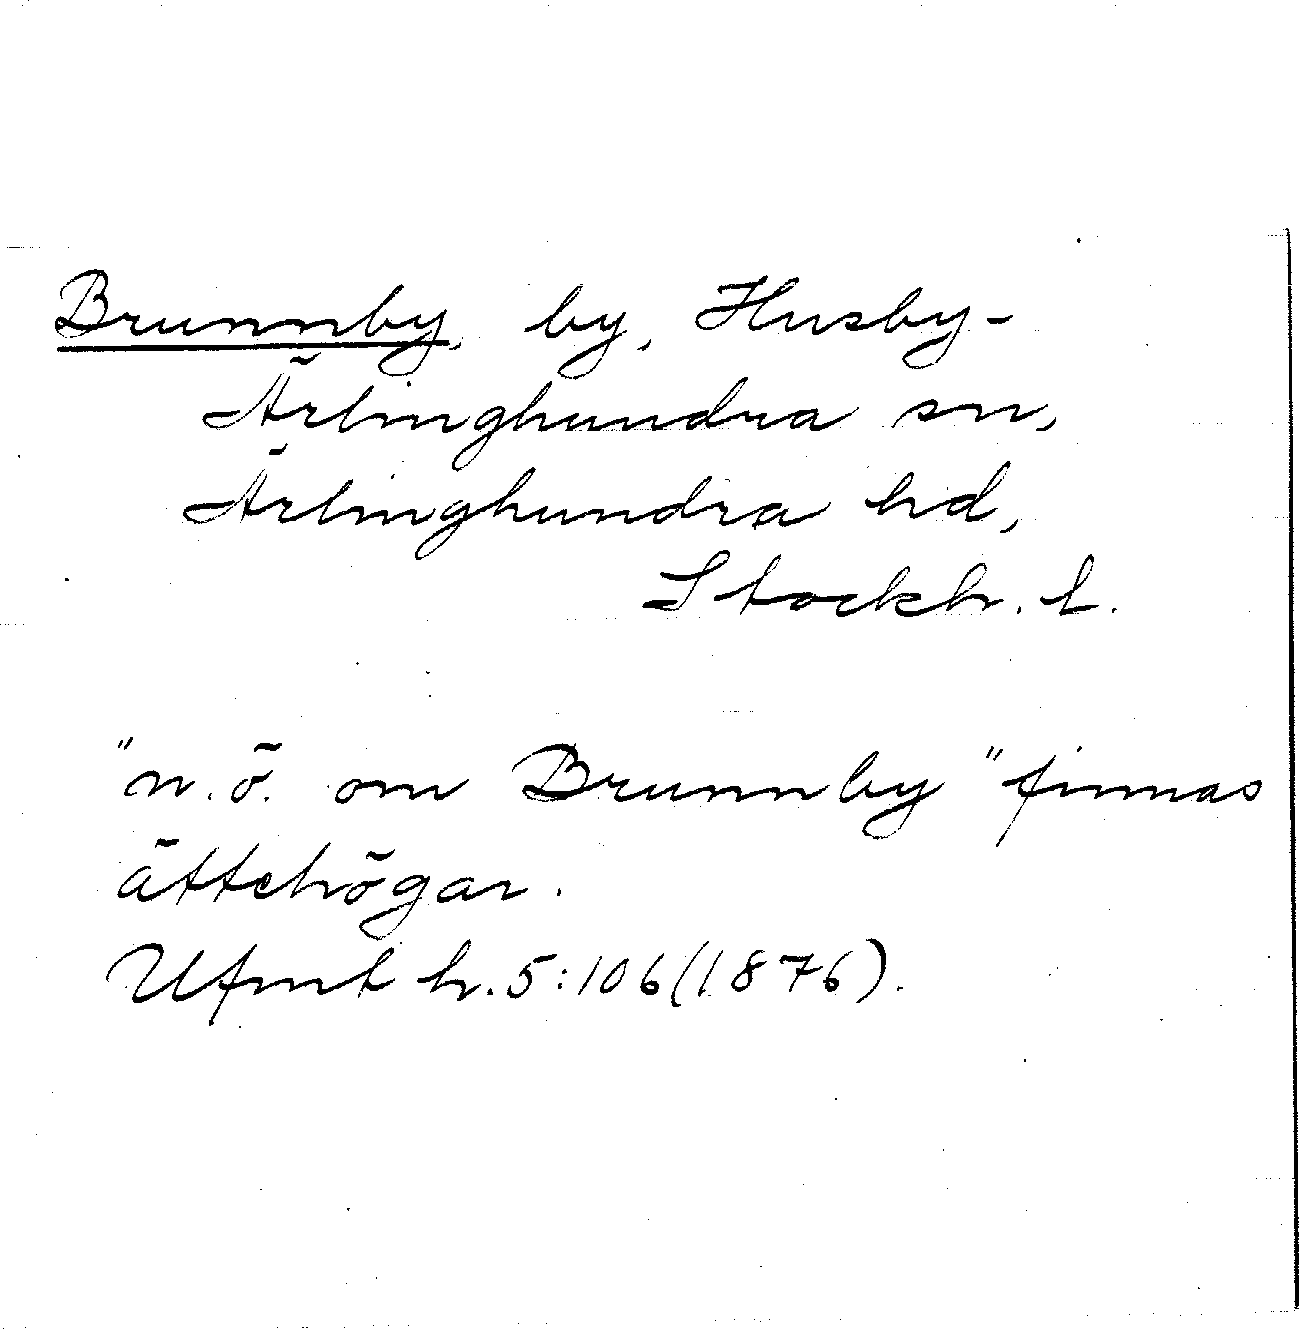 Brunnby, by, Husby-
Ärlinghundra sn,
Ärlinghundra hd,
Stockh. l.
"n.ö. om Brunnby" finnas
ättehögar.
Ufmt h. 5:106 (1876).